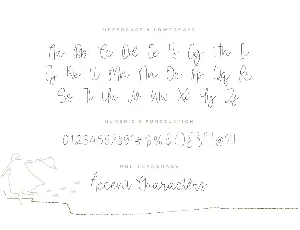 UPPERCASE & LOWERCASE
Aa Bb Cc Dd Ee Ff Gg Hh Ii
Jj Kk Ll Mm Nn Oo Pp Qq Rr
Ss Tt Uu Vv Ww Xx Yy Zz
NUMERIC & PUNCTUATION
MULTI LANGUAGE
Accent Characters